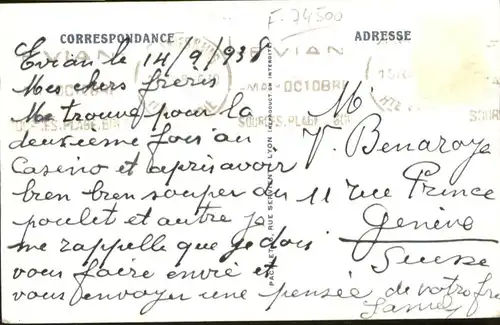 F. 24500
CORRESPONDANCE
ADRESSE
EVIAN
MAI-OCTOBRE
SOURCES.PLAGE.
Evian le 14/9/938
Mes chers frères
Me trouve pour la
deuxieme fois au
Casino et après avoir
bien bien souper du
poulet et autre je
me rappelle que je dois
vous faire envie et
vous envoyer une pensée de votre fre
M
V. Benaroya
11 rue Prince
Genève
Suisse